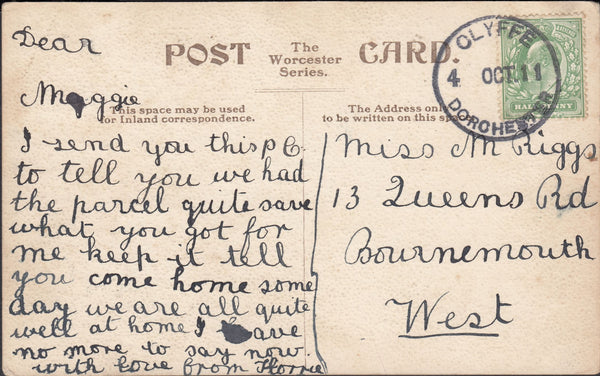 Dear
POST The Worcester Series. CARD.
Maggie
This space may be used for Inland correspondence.
The Address only to be written on this
I send you this P C
to tell you we had
the parcel quite save
what you got for
me keep it tell
you come home some
day we are all quite
well at home I have
no more to say now
with love from Florrie
Miss M Riggs
13 Queens Rd
Bournemouth
West
CLYFFE
4 OCT. 11
DORCHESTER
HALFPENNY